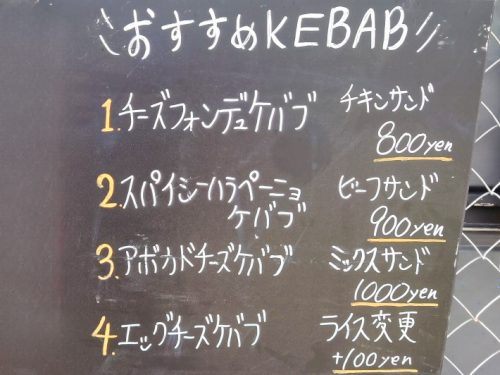 おすすめKEBAB
1.チーズフォンデュケバブ
チキンサンド
800yen
2.スパイシーハラペーニョ
ケバブ
ビーフサンド
900yen
3.アボカドチーズケバブ
ミックスサンド
1000yen
4.エッグチーズケバブ
ライス変更
+100yen